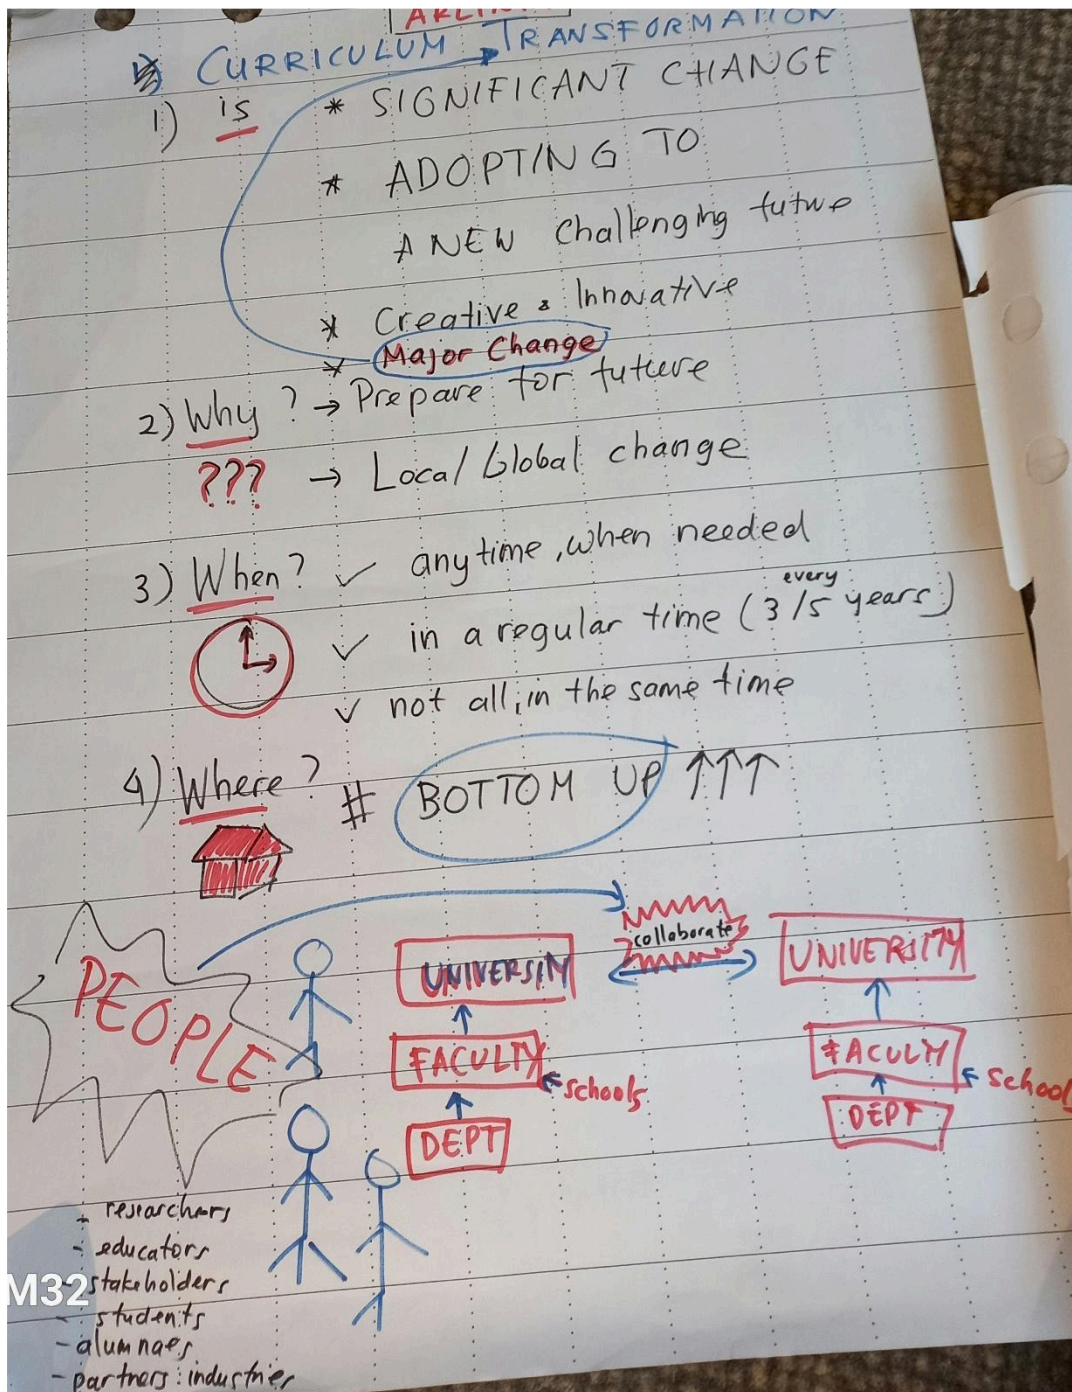 CURRICULUM TRANSFORMATION
1) is * SIGNIFICANT CHANGE
* ADOPTING TO
A NEW challenging future
* Creative & Innovative
* Major Change
2) Why? → Prepare for future
??? → Local/Global change
3) When? ✓ anytime, when needed
every
✓ in a regular time (3/5 years)
✓ not all, in the same time
4) Where? # BOTTOM UP ↑↑↑
PEOPLE
UNIVERSITY
collaborate
UNIVERSITY
FACULTY
schools
FACULTY
schools
DEPT
DEPT
- researchers
- educators
- stakeholders
- students
- alumnaes
- partners: industries
M32